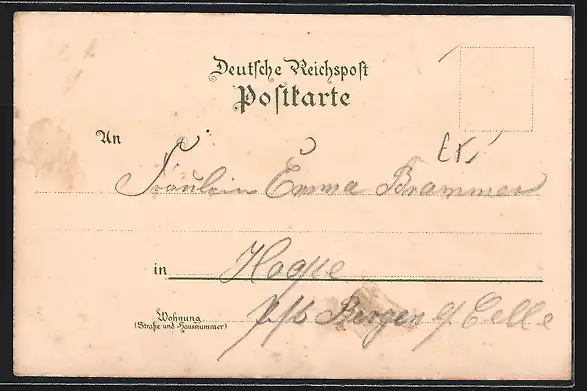 Deutsche Reichspost
Postkarte
An
Fräulein Emma Brammer
in Hagen
Wohnung
(Straße und Hausnummer)
b/b Bergen b/ Celle